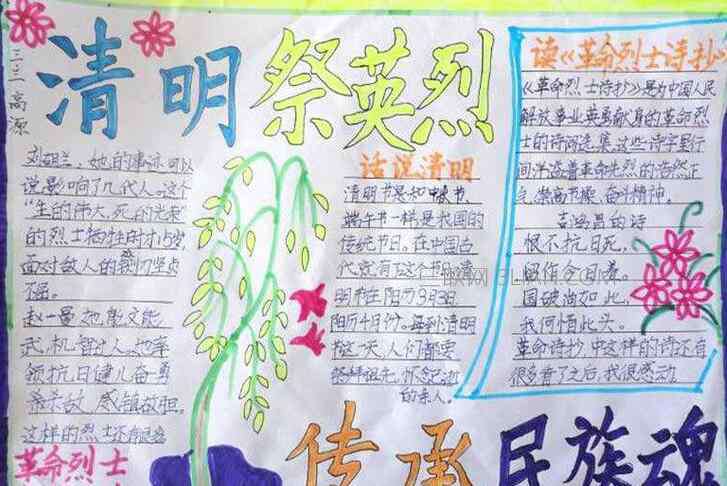 清明祭英烈
三三高源
刘胡兰，她的事迹可以
说影响了几代人。这个
“生的伟大，死的光荣”
的烈士牺牲时才15岁，
面对敌人的铡刀坚贞
不屈。
赵一曼她能文能
武，机智过人。她率
领抗日健儿奋勇
杀敌，威镇敌胆。
这样的烈士还有很多
革命烈士
话说清明
清明节是和中秋节、
端午节一样，是我国的
传统节日。在中国古
代就有了这个节日。清
明节在阳历3月3日，
阳历4月份。每到清明
这天，人们都要
祭拜祖先，怀念逝
的亲人。
读《革命烈士诗抄》
《革命烈士诗抄》是为中国人民
解放事业英勇献身的革命烈
士的诗词选集，这些诗字里行
间洋溢着革命先烈的浩然正
气、崇高节操、奋斗精神。
吉鸿昌的诗
恨不抗日死，
留作今日羞。
国破尚如此，
我何惜此头。
革命诗抄，中这样的诗还有
很多看了之后，我很感动
传承民族魂